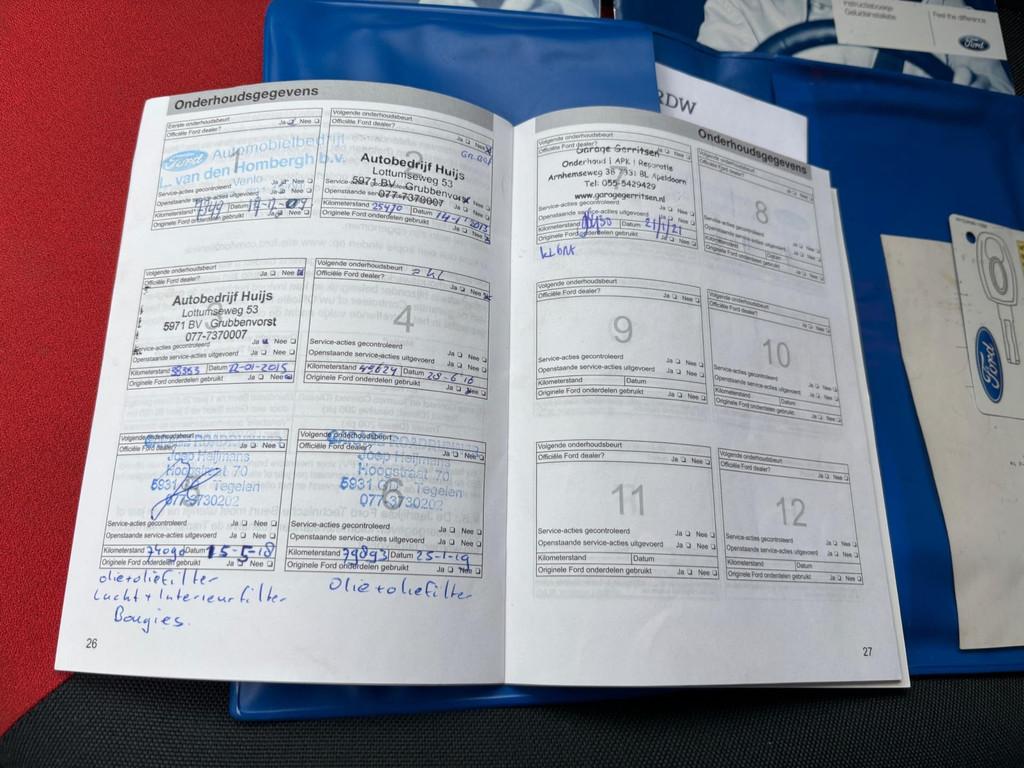 Instructieboekje
Geluidsinstallatie
Feel the difference
Ford
RDW
Onderhoudsgegevens
Eerste onderhoudsbeurt Ja Nee
Officiële Ford dealer?
Ford
Automobielbedrijf
L. van den Hombergh b.v.
Venlo
1
Service-acties gecontroleerd Ja Nee
Openstaande service-acties uitgevoerd Ja Nee
Kilometerstand Datum
Originele Ford onderdelen gebruikt Ja Nee
Volgende onderhoudsbeurt
Officiële Ford dealer? Ja Nee
Autobedrijf Huijs
Lottumseweg 53
5971 BV Grubbenvorst
077-7370007
Service-acties gecontroleerd
Openstaande service-acties uitgevoerd Ja Nee
Kilometerstand 25470 Datum 14-1-2013
Originele Ford onderdelen gebruikt Ja Nee
Volgende onderhoudsbeurt Ja Nee
Officiële Ford dealer?
Autobedrijf Huijs
Lottumseweg 53
5971 BV Grubbenvorst
077-7370007
3
Service-acties gecontroleerd Ja Nee
Openstaande service-acties uitgevoerd Ja Nee
Kilometerstand Datum 22-01-2015
Originele Ford onderdelen gebruikt Ja Nee
Volgende onderhoudsbeurt
Officiële Ford dealer? Ja Nee
4
Service-acties gecontroleerd Ja Nee
Openstaande service-acties uitgevoerd Ja Nee
Kilometerstand 49624 Datum 28-6-16
Originele Ford onderdelen gebruikt Ja Nee
Volgende onderhoudsbeurt
Officiële Ford dealer? Ja Nee
Joep Heijmans
Hoogstraat 70
5931 Tegelen
077-3730202
Service-acties gecontroleerd Ja Nee
Openstaande service-acties uitgevoerd Ja Nee
Kilometerstand 74090 Datum 15-5-18
Originele Ford onderdelen gebruikt Ja Nee
olie+oliefilter
Lucht + Interieurfilter
Bougies.
Volgende onderhoudsbeurt
Officiële Ford dealer? Ja Nee
Joep Heijmans
Hoogstraat 70
5931 Tegelen
077-3730202
6
Service-acties gecontroleerd Ja Nee
Openstaande service-acties uitgevoerd Ja Nee
Kilometerstand 79893 Datum 25-1-19
Originele Ford onderdelen gebruikt Ja Nee
Olie+oliefilter
26
Onderhoudsgegevens
Volgende onderhoudsbeurt
Officiële Ford dealer? Ja Nee
Garage Gerritsen
Onderhoud | APK | Reparatie
Arnhemseweg 38 7331 BL Apeldoorn
Tel: 055-5429429
www.garagegerritsen.nl
7
Service-acties gecontroleerd
Openstaande service-acties uitgevoerd Ja Nee
Kilometerstand Datum 21/1/21
Originele Ford onderdelen gebruikt Ja Nee
Volgende onderhoudsbeurt
Officiële Ford dealer? Ja Nee
8
Service-acties gecontroleerd Ja Nee
Openstaande service-acties uitgevoerd Ja Nee
Kilometerstand Datum
Originele Ford onderdelen gebruikt Ja Nee
Volgende onderhoudsbeurt
Officiële Ford dealer? Ja Nee
9
Service-acties gecontroleerd Ja Nee
Openstaande service-acties uitgevoerd Ja Nee
Kilometerstand Datum
Originele Ford onderdelen gebruikt Ja Nee
Volgende onderhoudsbeurt
Officiële Ford dealer? Ja Nee
10
Service-acties gecontroleerd Ja Nee
Openstaande service-acties uitgevoerd Ja Nee
Kilometerstand Datum
Originele Ford onderdelen gebruikt Ja Nee
Volgende onderhoudsbeurt
Officiële Ford dealer? Ja Nee
11
Service-acties gecontroleerd Ja Nee
Openstaande service-acties uitgevoerd Ja Nee
Kilometerstand Datum
Originele Ford onderdelen gebruikt Ja Nee
Volgende onderhoudsbeurt
Officiële Ford dealer? Ja Nee
12
Service-acties gecontroleerd Ja Nee
Openstaande service-acties uitgevoerd Ja Nee
Kilometerstand Datum
Originele Ford onderdelen gebruikt Ja Nee
27
Ford